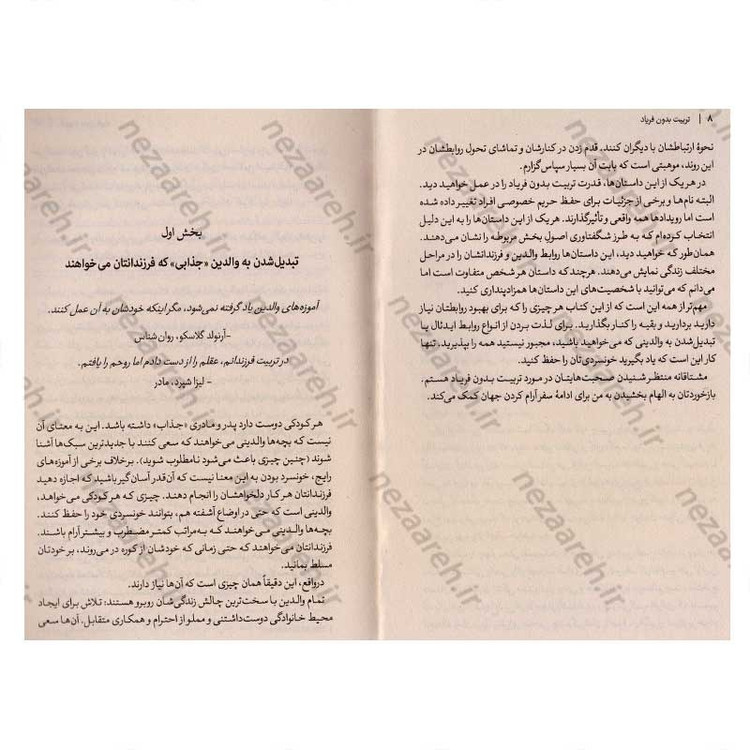 ۸ | تربیت بدون فریاد
نحوهٔ ارتباطشان با دیگران کنند. قدم زدن در کنارشان و تماشای تحول روابطشان در
این روند، موهبتی است که بابت آن بسیار سپاس‌گزارم.
در هر یک از این داستان‌ها، قدرت تربیت بدون فریاد را در عمل خواهید دید.
البته نام‌ها و برخی از جزئیات برای حفظ حریم خصوصی افراد تغییر داده شده
است اما رویدادها همه واقعی و تأثیرگذارند. هر یک از این داستان‌ها را به این دلیل
انتخاب کرده‌ام که به طرز شگفت‌آوری اصول بخش مربوطه را نشان می‌دهند.
همان‌طور که خواهید دید، این داستان‌ها روابط والدین و فرزندانشان را در مراحل
مختلف زندگی نمایش می‌دهند. هرچند که داستان هر شخص متفاوت است اما
می‌دانم که می‌توانید با شخصیت‌های این داستان‌ها همزادپنداری کنید.
مهم‌تر از همه این است که از این کتاب هر چیزی را که برای بهبود روابطتان نیاز
دارید بردارید و بقیه را کنار بگذارید. برای لذت بردن از انواع روابط ایدئال یا
تبدیل‌شدن به والدینی که می‌خواهید باشید، مجبور نیستید همه را بپذیرید، تنها
کار این است که یاد بگیرید خونسردی‌تان را حفظ کنید.
مشتاقانه منتظر شنیدن صحبت‌هایتان در مورد تربیت بدون فریاد هستم.
بازخوردتان به الهام بخشیدن به من برای ادامهٔ سفر آرام کردن جهان کمک می‌کند.
بخش اول
تبدیل‌شدن به والدین «جذابی» که فرزندانتان می‌خواهند
آموزه‌های والدین یاد گرفته نمی‌شود، مگر اینکه خودشان به آن عمل کنند.
-آرنولد گلاسکو، روان‌شناس
در تربیت فرزندانم، عقلم را از دست دادم اما روحم را یافتم.
- لیزا شپرد، مادر
هر کودکی دوست دارد پدر و مادری «جذاب» داشته باشد. این به معنای آن
نیست که بچه‌ها والدینی می‌خواهند که سعی کنند با جدیدترین سبک‌ها آشنا
شوند (چنین چیزی باعث می‌شود نامطلوب شوید). برخلاف برخی از آموزه‌های
رایج، خونسرد بودن به این معنا نیست که آن‌قدر آسان‌گیر باشید که اجازه دهید
فرزندانتان هر کار دلخواهشان را انجام دهند. چیزی که هر کودکی می‌خواهد،
والدینی است که حتی در اوضاع آشفته هم، بتوانند خونسردی خود را حفظ کنند.
بچه‌ها والدینی می‌خواهند که به‌مراتب کمتر مضطرب و بیشتر آرام باشند.
فرزندانتان می‌خواهند که حتی زمانی که خودشان از کوره در می‌روند، بر خودتان
مسلط بمانید.
درواقع، این دقیقاً همان چیزی است که آن‌ها نیاز دارند.
تمام والدین با سخت‌ترین چالش زندگی‌شان روبرو هستند: تلاش برای ایجاد
محیط خانوادگی دوست‌داشتنی و مملو از احترام و همکاری متقابل. آن‌ها سعی
nezaareh.ir
nezaareh.ir
nezaareh.ir
nezaareh.ir
nezaareh.ir
nezaareh.ir
nezaareh.ir
nezaareh.ir
nezaareh.ir
nezaareh.ir